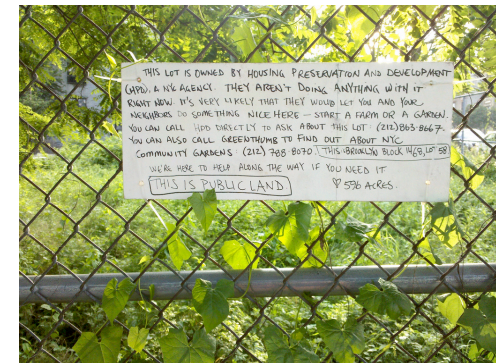 THIS LOT IS OWNED BY HOUSING PRESERVATION AND DEVELOPMENT
(HPD), A NYC AGENCY. THEY AREN'T DOING ANYTHING WITH IT
RIGHT NOW. IT'S VERY LIKELY THAT THEY WOULD LET YOU AND YOUR
NEIGHBORS DO SOMETHING NICE HERE — START A FARM OR A GARDEN.
YOU CAN CALL HPD DIRECTLY TO ASK ABOUT THIS LOT · (212) 863·8667.
YOU CAN ALSO CALL GREENTHUMB TO FIND OUT ABOUT NYC
COMMUNITY GARDENS (212) 788·8070. THIS: BROOKLYN BLOCK 1469, LOT 58
WE'RE HERE TO HELP ALONG THE WAY IF YOU NEED IT
THIS IS PUBLIC LAND ♡ 596 ACRES.